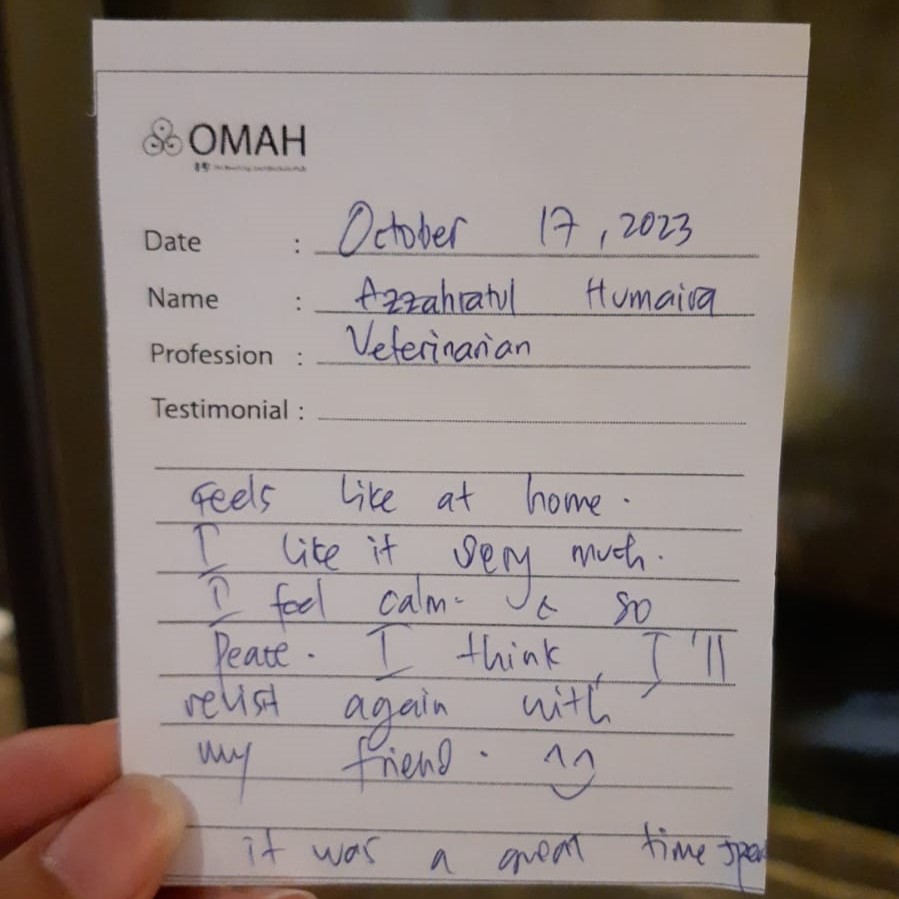 OMAH
Date : October 17, 2023
Name : Azzahratul Humaira
Profession : Veterinarian
Testimonial :
Feels like at home.
I like it very much.
I feel calm. & so
Peace. I think, I'll
revisit again with
my friend. ^^
it was a great time